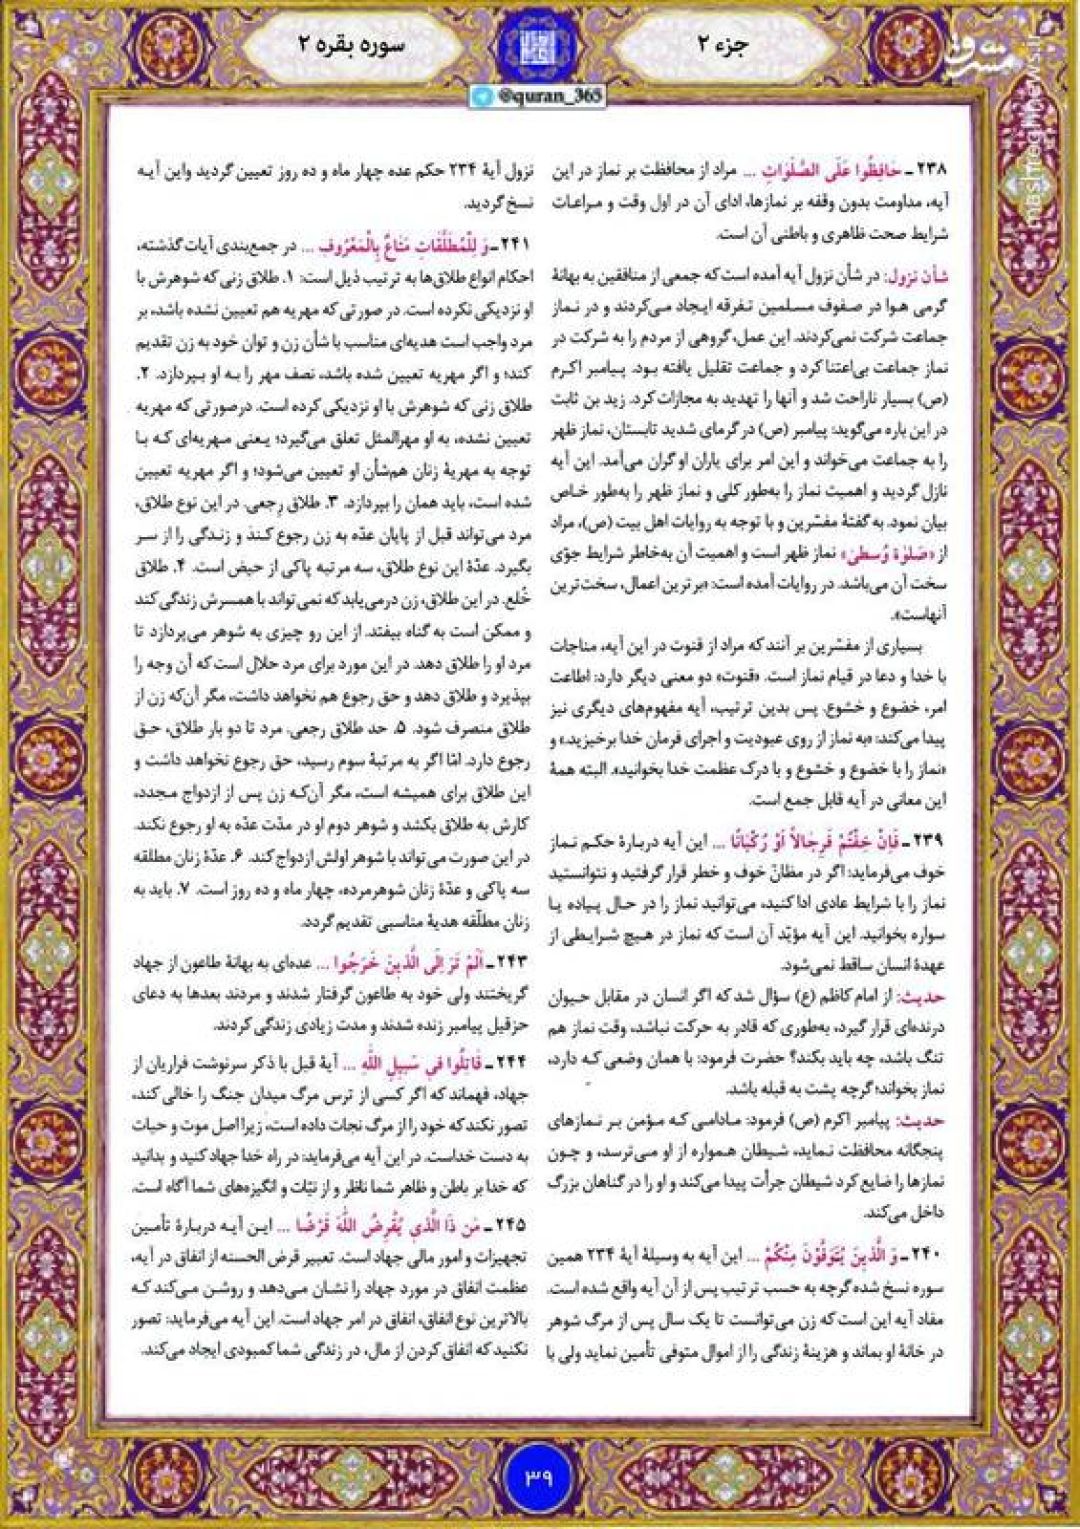 جزء ۲
سوره بقره ۲
مشرق
mashreghnews.ir
@quran_365
۲۳۸ ـ حَافِظُوا عَلَى الصَّلَوَاتِ ... مراد از محافظت بر نماز در این
آیه، مداومت بدون وقفه بر نمازها، ادای آن در اول وقت و مراعات
شرایط صحت ظاهری و باطنی آن است.
شأن نزول: در شأن نزول آیه آمده است که جمعی از منافقین به بهانهٔ
گرمی هوا در صفوف مسلمین تفرقه ایجاد می‌کردند و در نماز
جماعت شرکت نمی‌کردند. این عمل، گروهی از مردم را به شرکت در
نماز جماعت بی‌اعتنا کرد و جماعت تقلیل یافته بود. پیامبر اکرم
(ص) بسیار ناراحت شد و آنها را تهدید به مجازات کرد. زید بن ثابت
در این باره می‌گوید: پیامبر (ص) در گرمای شدید تابستان، نماز ظهر
را به جماعت می‌خواند و این امر برای یاران او گران می‌آمد. این آیه
نازل گردید و اهمیت نماز را به‌طور کلی و نماز ظهر را به‌طور خاص
بیان نمود. به گفتهٔ مفسّرین و با توجه به روایات اهل بیت (ص)، مراد
از «صَلوٰة وُسطیٰ» نماز ظهر است و اهمیت آن به‌خاطر شرایط جوّی
سخت آن می‌باشد. در روایات آمده است: «برترین اعمال، سخت‌ترین
آنهاست».
بسیاری از مفسّرین بر آنند که مراد از قنوت در این آیه، مناجات
با خدا و دعا در قیام نماز است. «قنوت» دو معنی دیگر دارد: اطاعت
امر، خضوع و خشوع. پس بدین ترتیب، آیه مفهوم‌های دیگری نیز
پیدا می‌کند: «به نماز از روی عبودیت و اجرای فرمان خدا برخیزید.» و
«نماز را با خضوع و خشوع و با درک عظمت خدا بخوانید». البته همهٔ
این معانی در آیه قابل جمع است.
۲۳۹ ـ فَإِنْ خِفْتُمْ فَرِجَالاً أَوْ رُكْبَانًا ... این آیه دربارهٔ حکم نماز
خوف می‌فرماید: اگر در مظانّ خوف و خطر قرار گرفتید و نتوانستید
نماز را با شرایط عادی ادا کنید، می‌توانید نماز را در حال پیاده یا
سواره بخوانید. این آیه مؤیّد آن است که نماز در هیچ شرایطی از
عهدهٔ انسان ساقط نمی‌شود.
حدیث: از امام کاظم (ع) سؤال شد که اگر انسان در مقابل حیوان
درنده‌ای قرار گیرد، به‌طوری که قادر به حرکت نباشد، وقت نماز هم
تنگ باشد، چه باید بکند؟ حضرت فرمود: با همان وضعی که دارد،
نماز بخواند؛ گرچه پشت به قبله باشد.
حدیث: پیامبر اکرم (ص) فرمود: مادامی که مؤمن بر نمازهای
پنجگانه محافظت نماید، شیطان همواره از او می‌ترسد، و چون
نمازها را ضایع کرد شیطان جرأت پیدا می‌کند و او را در گناهان بزرگ
داخل می‌کند.
۲۴۰ ـ وَ الَّذِينَ يُتَوَفَّوْنَ مِنْكُمْ ... این آیه به وسیلهٔ آیهٔ ۲۳۴ همین
سوره نسخ شده گرچه به حسب ترتیب پس از آن آیه واقع شده است.
مفاد آیه این است که زن می‌توانست تا یک سال پس از مرگ شوهر
در خانهٔ او بماند و هزینهٔ زندگی را از اموال متوفی تأمین نماید ولی با
نزول آیهٔ ۲۳۴ حکم عده چهار ماه و ده روز تعیین گردید واین آیه
نسخ گردید.
۲۴۱ ـ وَ لِلْمُطَلَّقَاتِ مَتَاعٌ بِالْمَعْرُوفِ ... در جمع‌بندی آیات گذشته،
احکام انواع طلاق‌ها به ترتیب ذیل است: ۱. طلاق زنی که شوهرش با
او نزدیکی نکرده است. در صورتی که مهریه هم تعیین نشده باشد، بر
مرد واجب است هدیه‌ای مناسب با شأن زن و توان خود به زن تقدیم
کند؛ و اگر مهریه تعیین شده باشد، نصف مهر را به او بپردازد. ۲.
طلاق زنی که شوهرش با او نزدیکی کرده است. درصورتی که مهریه
تعیین نشده، به او مهرالمثل تعلق می‌گیرد؛ یعنی مهریه‌ای که با
توجه به مهریهٔ زنان هم‌شأن او تعیین می‌شود؛ و اگر مهریه تعیین
شده است، باید همان را بپردازد. ۳. طلاق رِجعی. در این نوع طلاق،
مرد می‌تواند قبل از پایان عدّه به زن رجوع کند و زندگی را از سر
بگیرد. عدّهٔ این نوع طلاق، سه مرتبه پاکی از حیض است. ۴. طلاق
خُلع. در این طلاق، زن درمی‌یابد که نمی‌تواند با همسرش زندگی کند
و ممکن است به گناه بیفتد. از این رو چیزی به شوهر می‌پردازد تا
مرد او را طلاق دهد. در این مورد برای مرد حلال است که آن وجه را
بپذیرد و طلاق دهد و حق رجوع هم نخواهد داشت، مگر آن‌که زن از
طلاق منصرف شود. ۵. حد طلاق رجعی. مرد تا دو بار طلاق، حق
رجوع دارد. امّا اگر به مرتبهٔ سوم رسید، حق رجوع نخواهد داشت و
این طلاق برای همیشه است، مگر آن‌که زن پس از ازدواج مجدد،
کارش به طلاق بکشد و شوهر دوم او در مدّت عدّه به او رجوع نکند.
در این صورت می‌تواند با شوهر اولش ازدواج کند. ۶. عدّهٔ زنان مطلقه
سه پاکی و عدّهٔ زنان شوهرمرده، چهار ماه و ده روز است. ۷. باید به
زنان مطلّقه هدیهٔ مناسبی تقدیم گردد.
۲۴۳ ـ أَلَمْ تَرَ إِلَى الَّذِينَ خَرَجُوا ... عده‌ای به بهانهٔ طاعون از جهاد
گریختند ولی خود به طاعون گرفتار شدند و مردند بعدها به دعای
حزقیل پیامبر زنده شدند و مدت زیادی زندگی کردند.
۲۴۴ ـ قَاتِلُوا فِي سَبِيلِ اللَّهِ ... آیهٔ قبل با ذکر سرنوشت فراریان از
جهاد، فهماند که اگر کسی از ترس مرگ میدان جنگ را خالی کند،
تصور نکند که خود را از مرگ نجات داده است، زیرا اصل موت و حیات
به دست خداست. در این آیه می‌فرماید: در راه خدا جهاد کنید و بدانید
که خدا بر باطن و ظاهر شما ناظر و از نیّات و انگیزه‌های شما آگاه است.
۲۴۵ ـ مَن ذَا الَّذِي يُقْرِضُ اللَّهَ قَرْضًا ... این آیه دربارهٔ تأمین
تجهیزات و امور مالی جهاد است. تعبیر قرض الحسنه از انفاق در آیه،
عظمت انفاق در مورد جهاد را نشان می‌دهد و روشن می‌کند که
بالاترین نوع انفاق، انفاق در امر جهاد است. این آیه می‌فرماید: تصور
نکنید که انفاق کردن از مال، در زندگی شما کمبودی ایجاد می‌کند.
۳۹